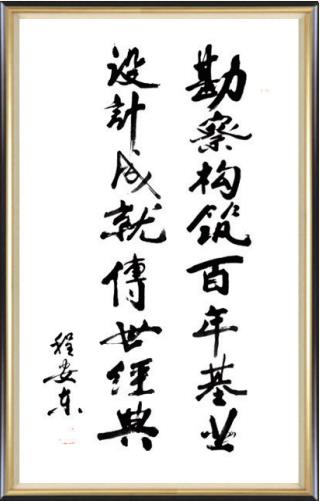 勘察构筑百年基业
設計成就傳世經典
程安东